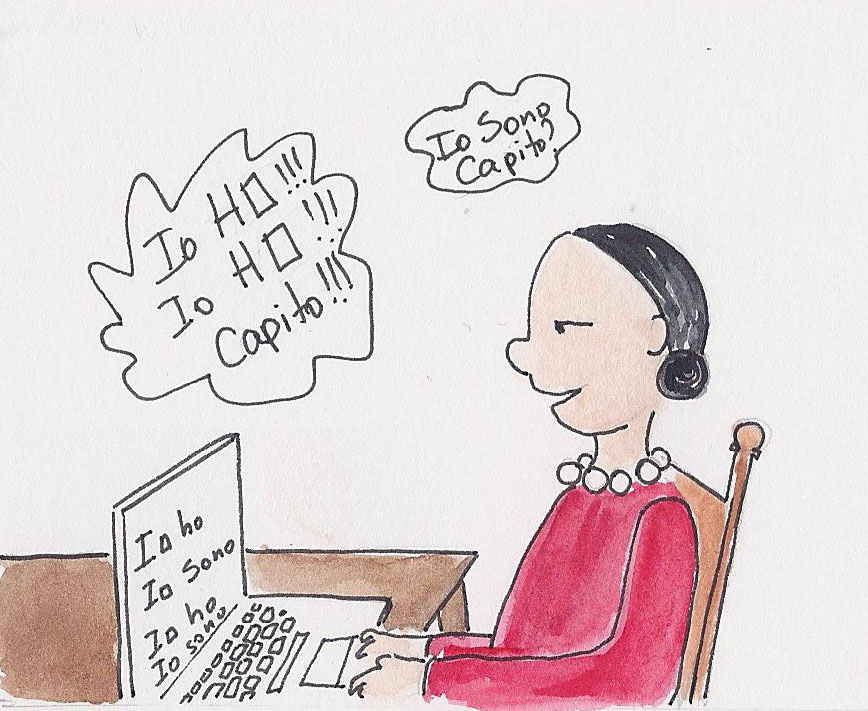 Io Sono
Capito?
Io HO!!!
Io HO!!!
Capito!!!
Io ho
Io Sono
Io ho
Io sono